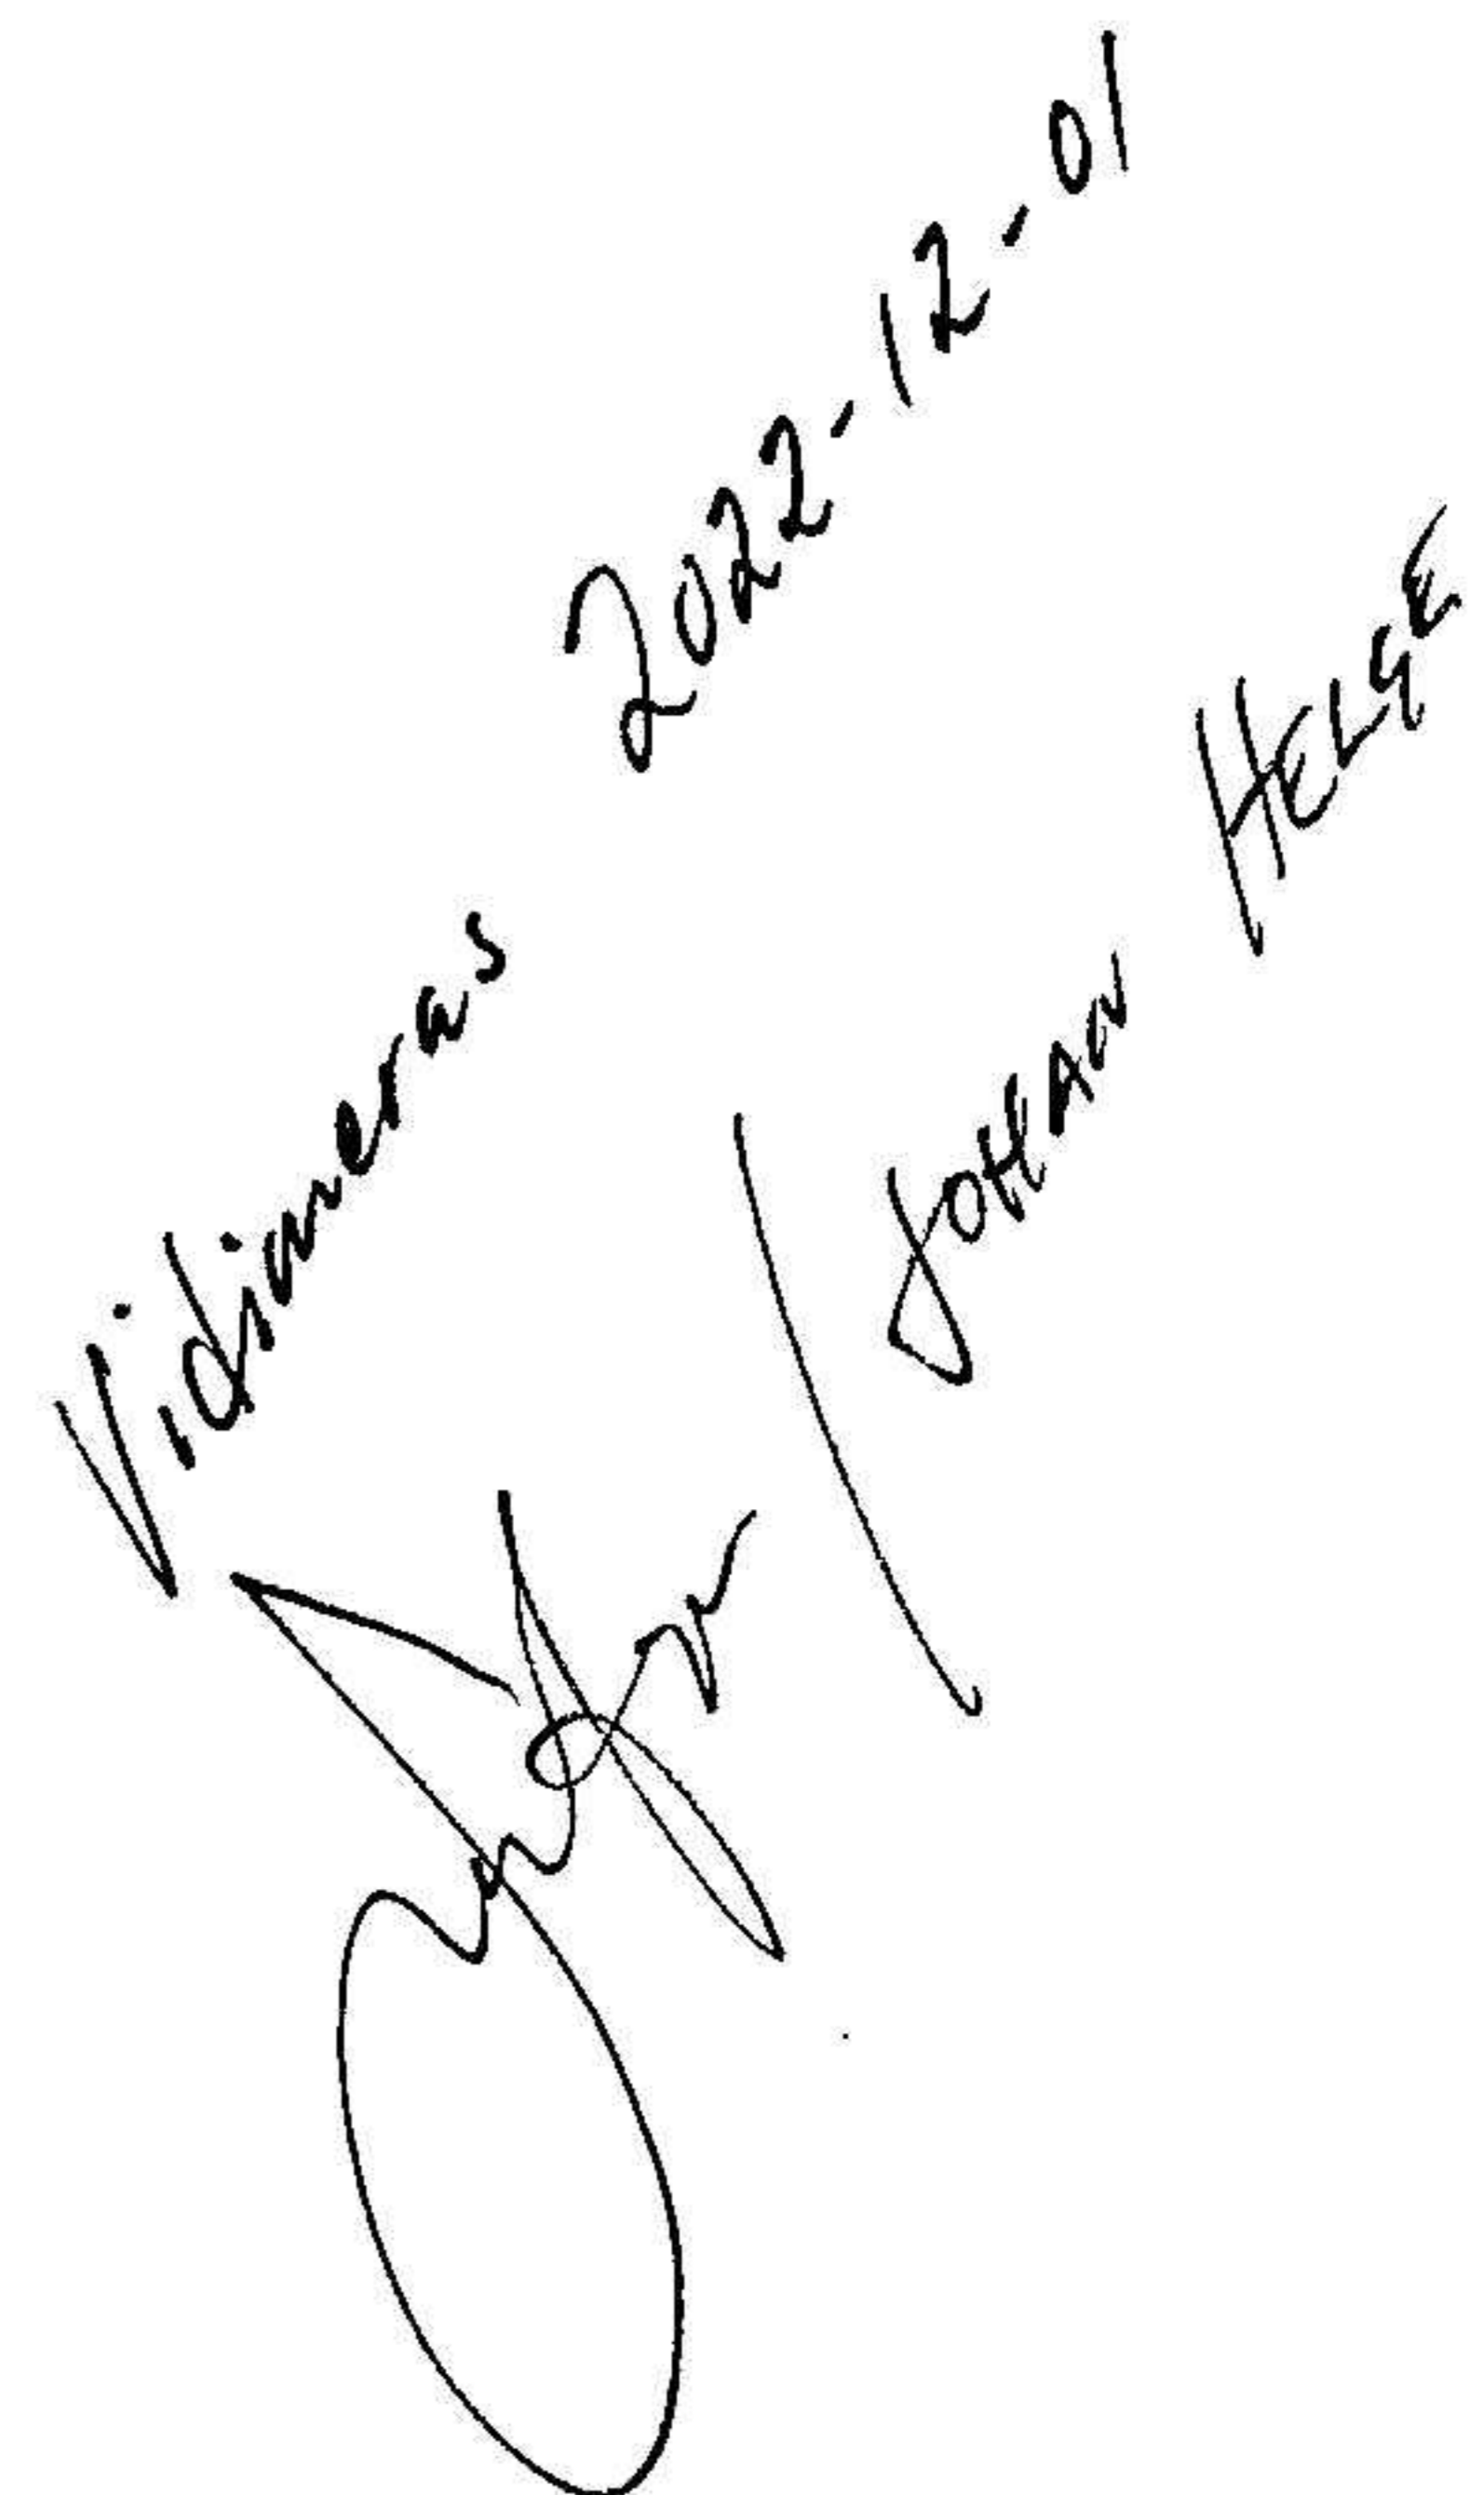 Vidimeras 2022-12-01
/ JOHAN HELGE